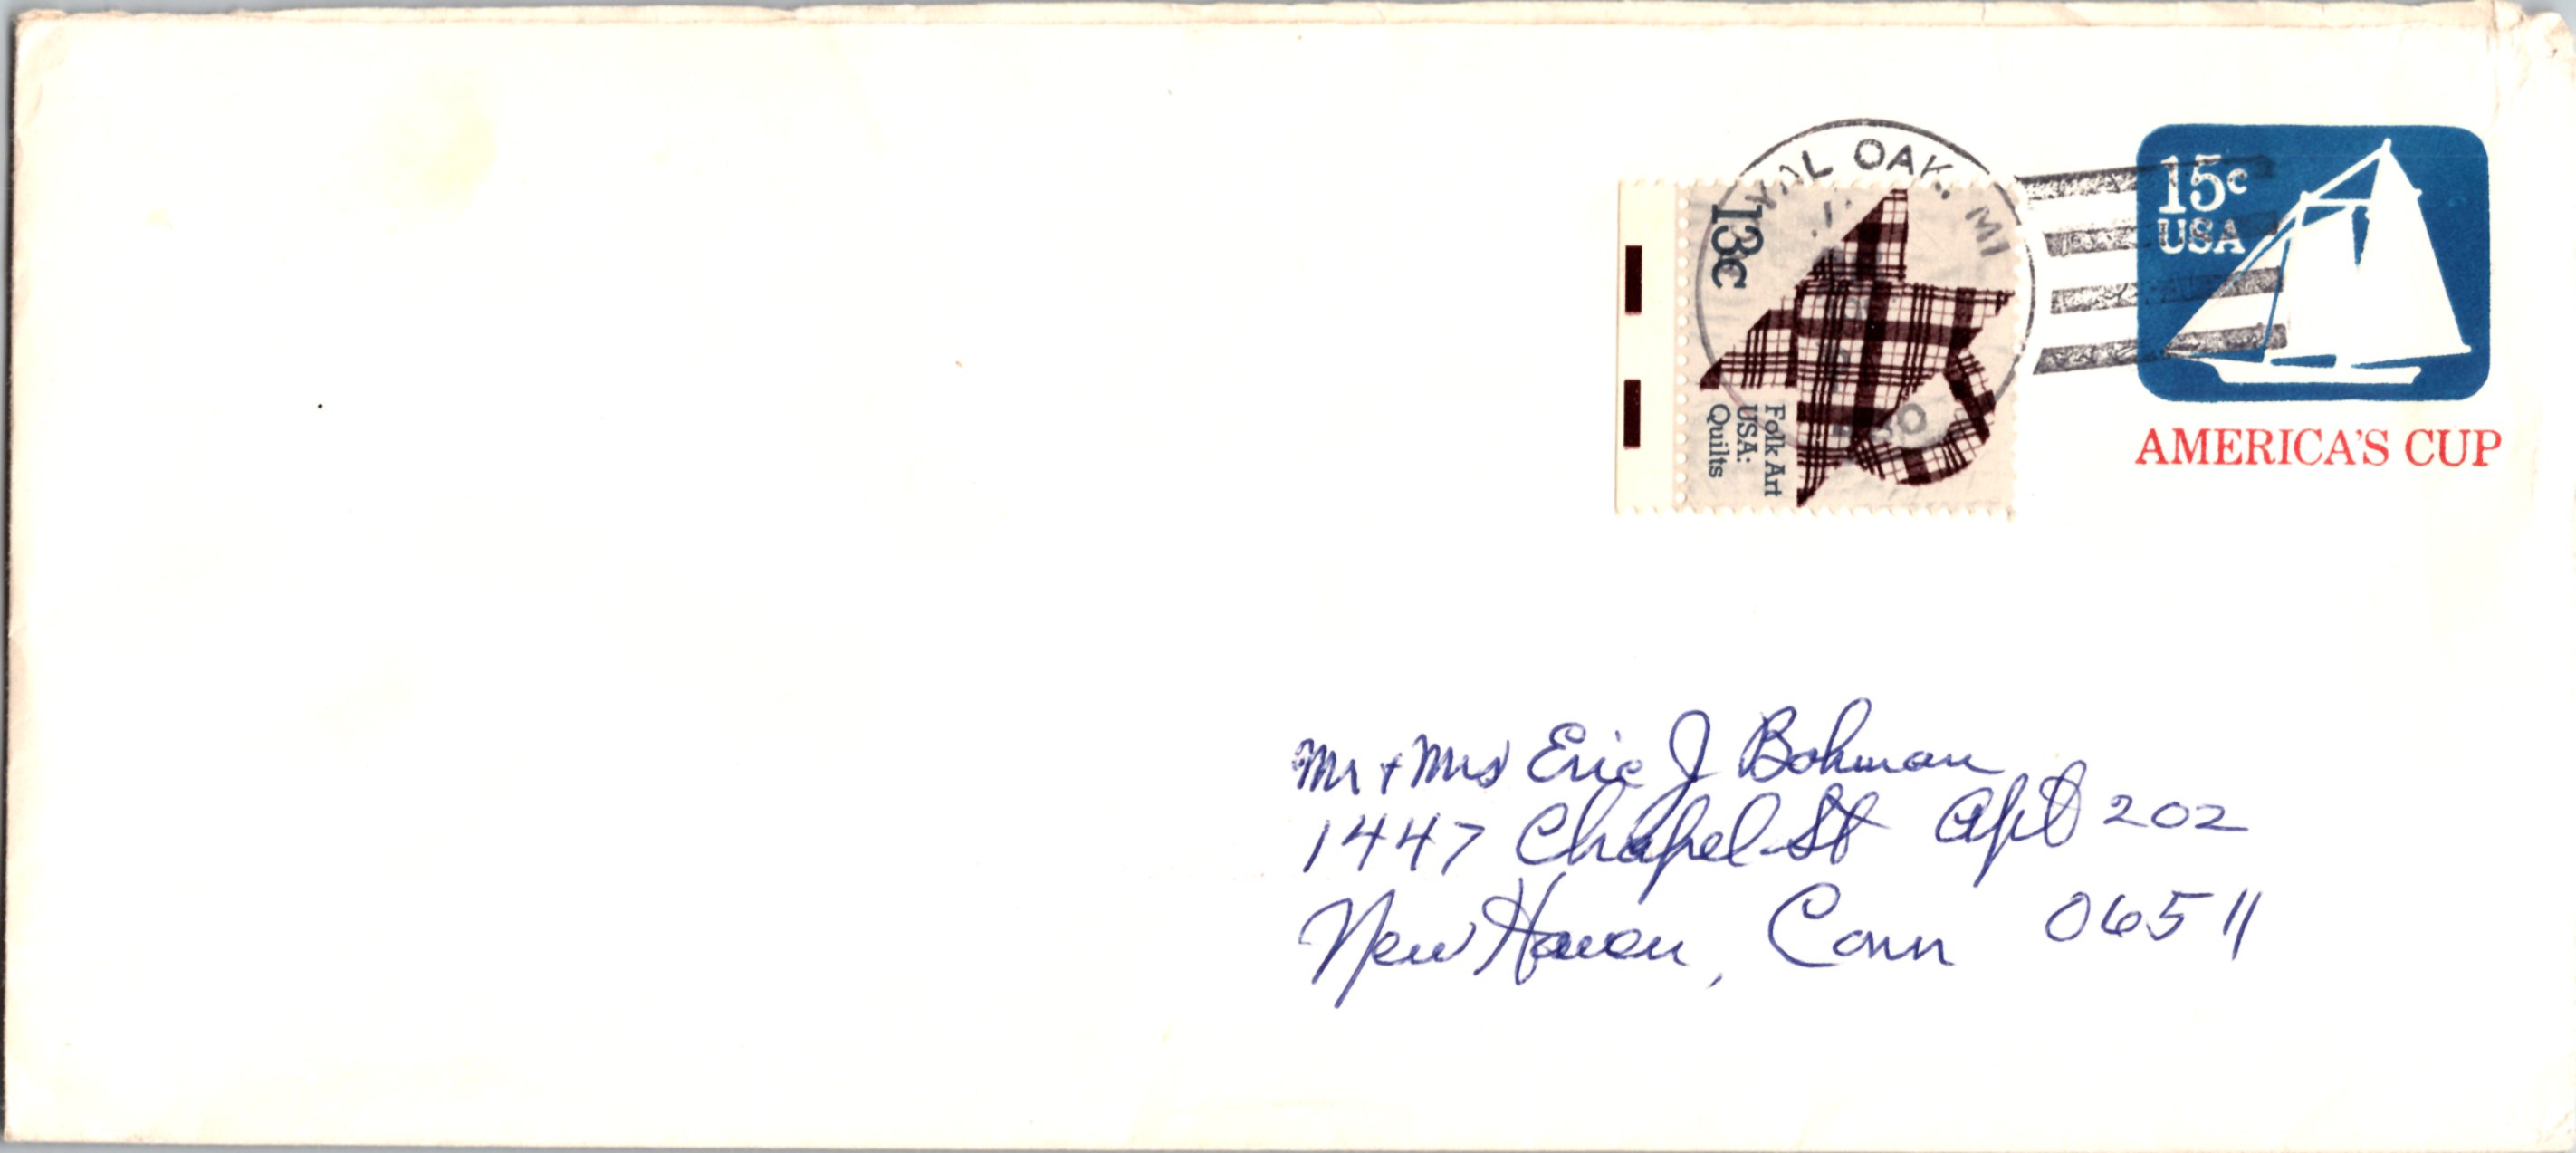 YAL OAK, MI
13c
Folk Art
USA:
Quilts
15c
USA
AMERICA'S CUP
Mr + Mrs Eric J Bohman
1447 Chapel St Apt 202
New Haven, Conn 06511